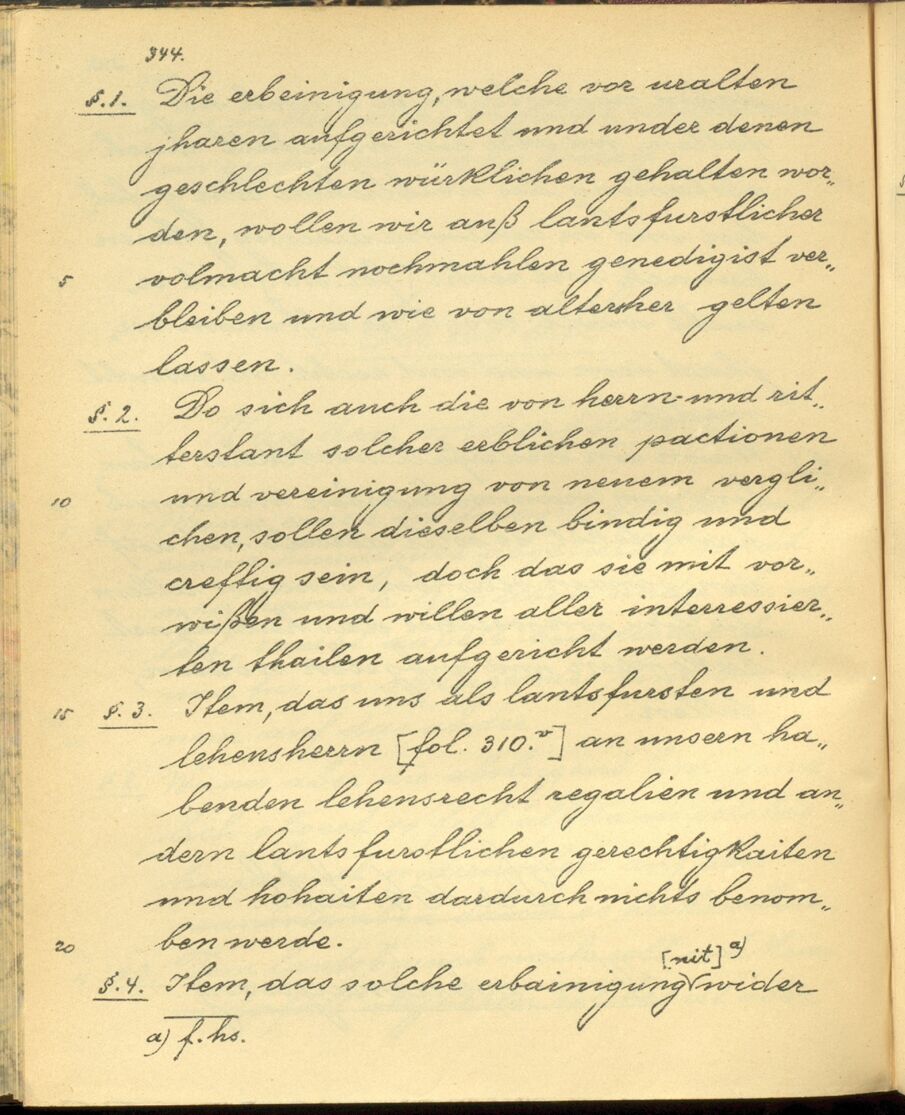 344.
§.1. Die erbeinigung, welche vor uralten
jharen aufgerichtet und under denen
geschlechten würklichen gehalten wor„
den, wollen wir auß lantsfurstlicher
5 volmacht nochmahlen genedigist ver„
bleiben und wie von altersher gelten
lassen.
§.2. Do sich auch die von herrn- und rit„
terstant solcher erblichen pactionen
10 und vereinigung von neuem vergli„
chen, sollen dieselben bindig und
creftig sein, doch das sie mit vor„
wißen und willen aller interressier„
ten thailen aufgericht werden.
15 §.3. Item, das uns als lantsfursten und
lehensherrn [fol. 310.v] an unsern ha„
benden lehensrecht regalien und an„
dern lantsfurstlichen gerechtigkaiten
und hohaiten dardurch nichts benom„
20 ben werde.
[nit] a)
§.4. Item, das solche erbainigung wider
a) f. hs.